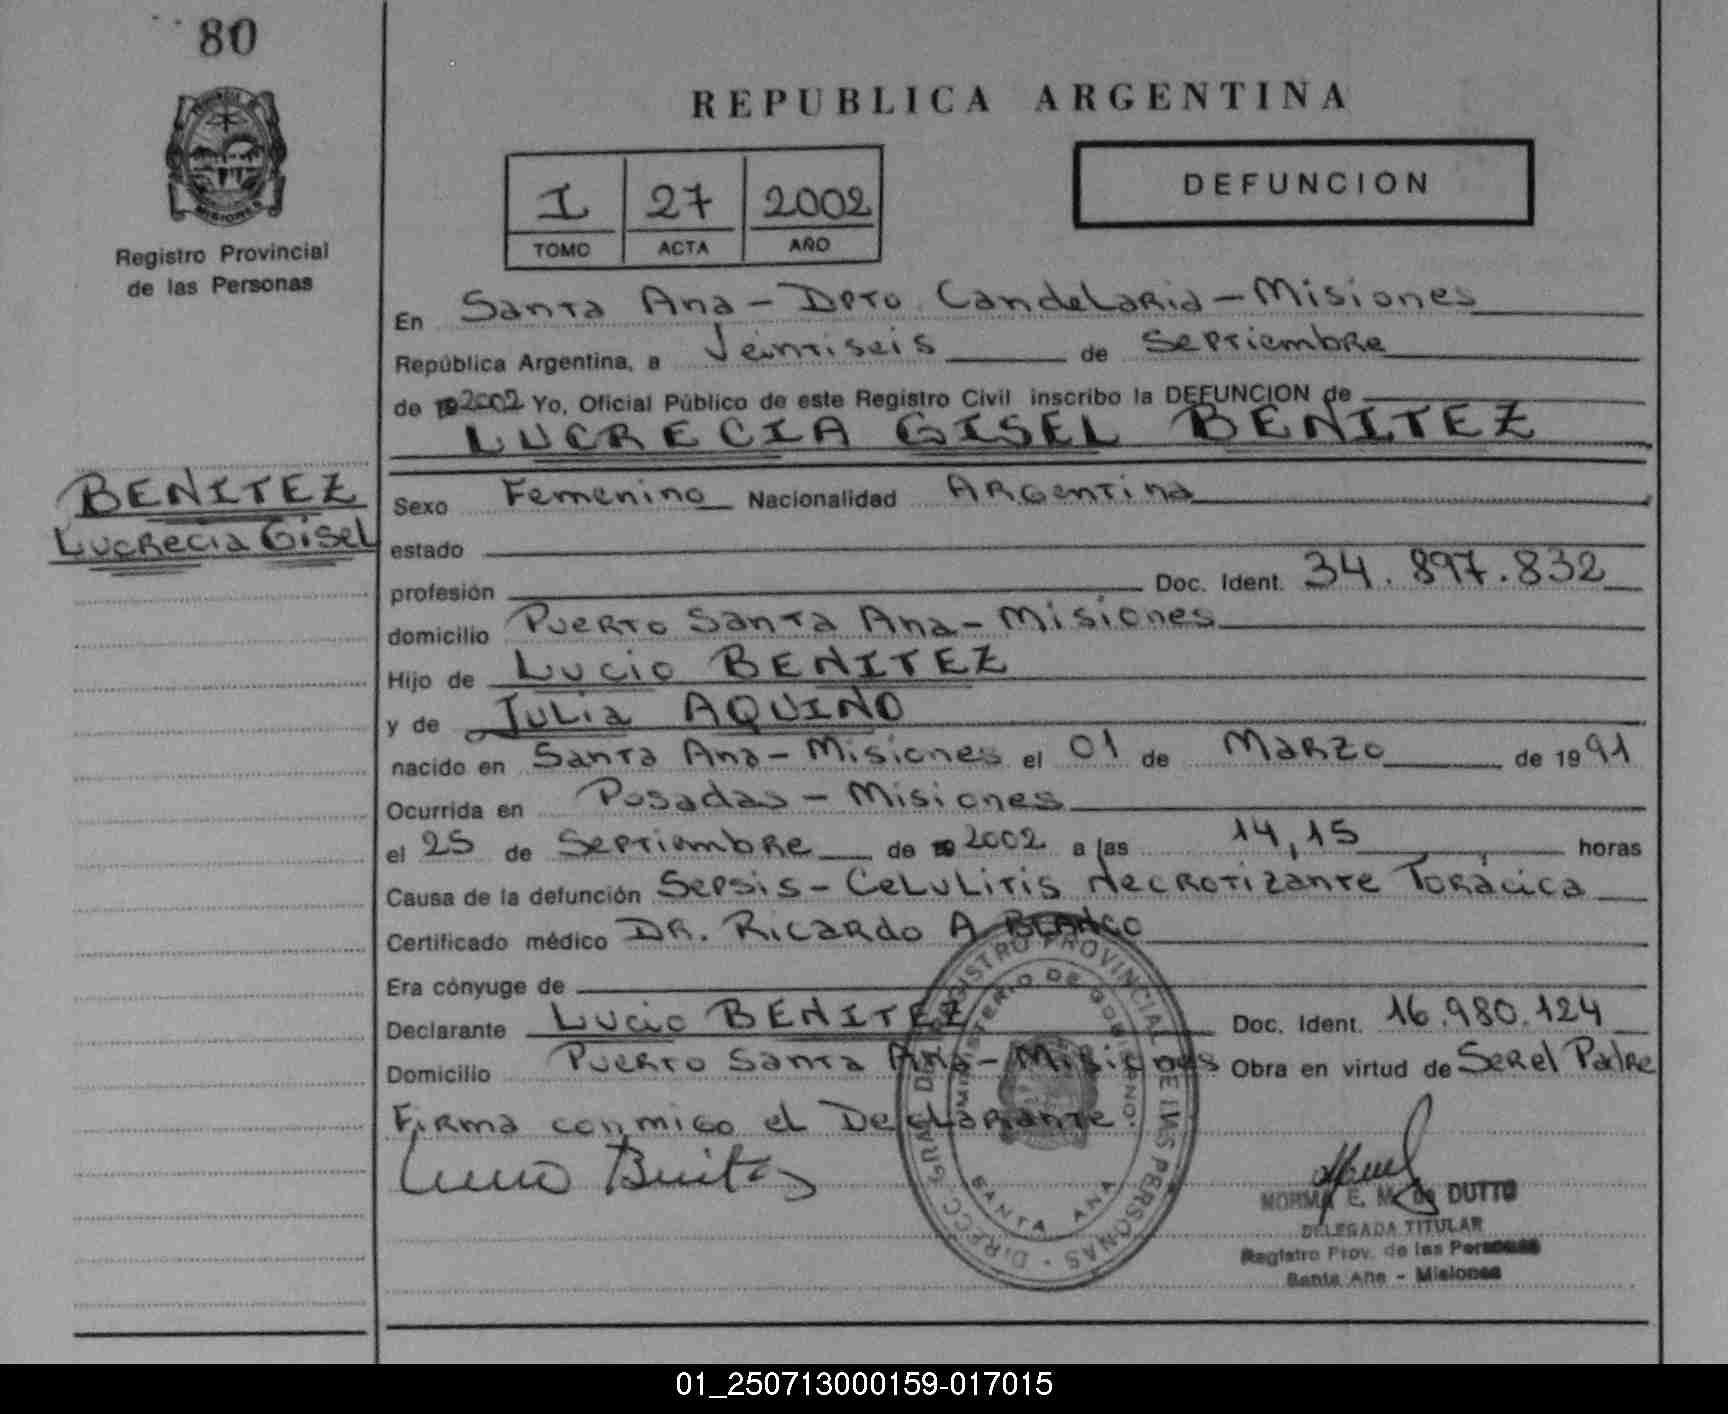 80
REPUBLICA ARGENTINA
PROVINCIA DE
MISIONES
Registro Provincial
de las Personas
I 27 2002
TOMO ACTA AÑO
DEFUNCION
En Santa Ana - Dpto. Candelaria - Misiones
República Argentina, a Veintiseis de Septiembre
de 19 2002 Yo, Oficial Público de este Registro Civil inscribo la DEFUNCION de
LUCRECIA GISEL BENITEZ
BENITEZ
Lucrecia Gisel
Sexo Femenino Nacionalidad Argentina
estado
profesión Doc. Ident. 34.897.832
domicilio Puerto Santa Ana - Misiones
Hijo de Lucio BENITEZ
y de Julia AQUINO
nacido en Santa Ana - Misiones el 01 de Marzo de 1991
Ocurrida en Posadas - Misiones
el 25 de Septiembre de 19 2002 a las 14,15 horas
Causa de la defunción Sepsis - Celulitis Necrotizante Torácica
Certificado médico DR. Ricardo A BLANCO
Era cónyuge de
Declarante Lucio BENITEZ Doc. Ident. 16.980.124
Domicilio Puerto Santa Ana - Misiones Obra en virtud de Ser el Padre
Firma conmigo el Declarante.
Lucio Benitez
DIRECC. GRAL. DEL REGISTRO PROVINCIAL DE LAS PERSONAS
MINISTERIO DE GOBIERNO
SANTA ANA
NORMA E. M. de DUTTO
DELEGADA TITULAR
Registro Prov. de las Personas
Santa Ana - Misiones
01_250713000159-017015